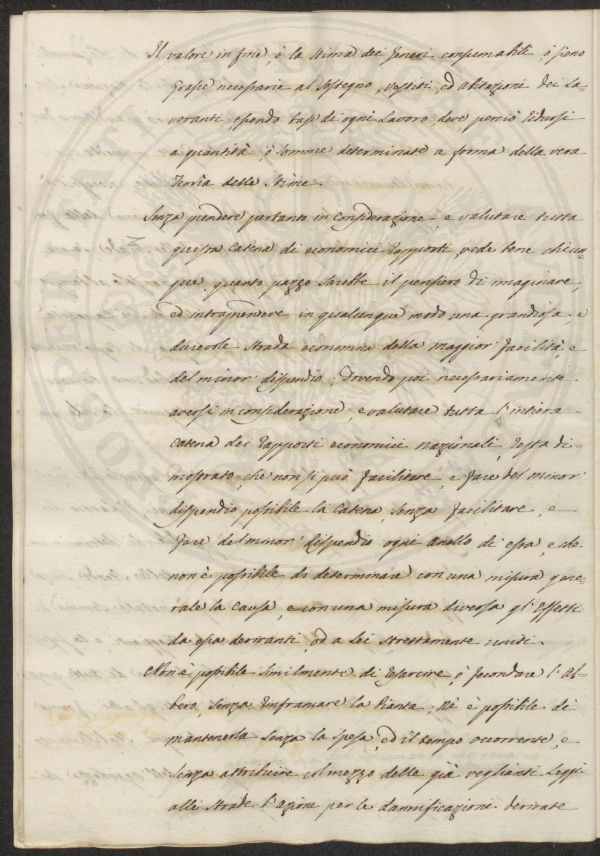 Il valore in fine, ò la Stima dei generi consumabili, ò sieno
grasce necessarie al sostegno, vestiti, ed abitazioni dei La-
voranti essendo basi di ogni Lavoro, deve perciò ridursi
a quantità, ò Somme determinate a forma della vera
Teorìa delle Stime.
Senza prendere pertanto in Considerazione, e valutare tutta
questa Catena di economici rapporti vede bene chiun-
que, quanto pazzo sarebbe il pensiero di imaginare,
ed intraprendere in qualunque modo una grandiosa, e
durevole Strada economica della maggior facilità, e
del minor dispendio; Dovendo poi necessariamente
aversi in considerazione, e valutare tutta l'intiera
Catena dei rapporti economici nazionali, resta di-
mostrato, che non si può facilitare, e fare del minor
dispendio possibile la Catena, senza facilitare, e
fare del minor dispendio ogni Anello di essa, e che
non è possibile di determinare con una misura gene-
rale la Causa, e con una misura diversa gl'Effetti
da essa derivanti, ed a Lei strettamente uniti.
Non è possibile similmente di Esercire ò fecondare l'Al-
bero, senza la Pianta; Nè è possibile di
mantenerla senza la spesa, ed il tempo occorrente, e
senza attribuire col mezzo delle già veglianti Leggi
alle Strade l'azione per le dannificazioni derivate
PROSPER